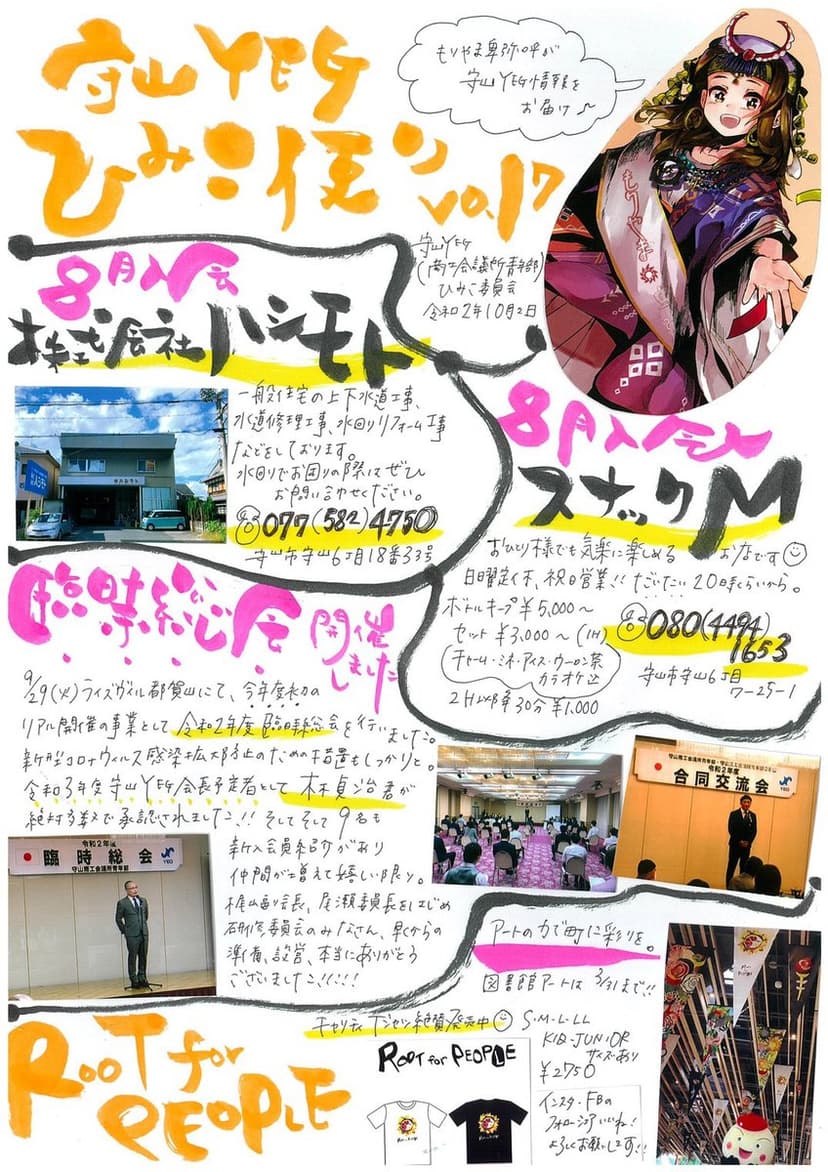 守山YEG
ひみこ便り vol.17
もりやま卑弥呼が
守山YEG情報を
お届け♪
もりやま
守山YEG
(商工会議所青年部)
ひみこ委員会
令和2年10月2日
8月入会
株式会社ハシモト
一般住宅の上下水道工事、
水道修理工事、水回りリフォーム工事
などをしております。
水回りでお困りの際はぜひ
お問い合わせください。
077(582)4750
守山市守山6丁目18番33号
8月入会
スナックM
おひとり様でも気楽に楽しめるお店です
日曜定休、祝日営業!! だいたい20時くらいから。
ボトルキープ¥5,000〜
セット¥3,000〜(1H)
チャーム・ミネ・アイス・ウーロン茶
カラオケ込
2H以降30分¥1,000
080(4494)
1653
守山市守山6丁目
7-25-1
臨時総会開催
しました
9/29(火)ライズヴィル都賀山にて、今年度初の
リアル開催の事業として令和2年度臨時総会を行いました。
新型コロナウィルス感染拡大防止のための措置もしっかりと。
令和3年度守山YEG会長予定者として林貞治君が
絶対多数で承認されました!! そしてそして9名も
新入会員紹介があり
仲間が増えて嬉しい限り。
梶山副会長、尾瀬委員長をはじめ
研修委員会のみなさん、早くからの
準備、設営、本当にありがとう
ございました!!!!
令和2年度
臨時総会
守山商工会議所青年部
YEG
守山商工会議所青年部・守山商工会議所
令和2年度
合同交流会
YEG
アートの力で町に彩りを。
図書館アートは3/31まで!!
ROOT for
PEOPLE
チャリティTシャツ絶賛発売中
S・M・L・LL
KID・JUNIOR
サイズあり
¥2750
ROOT for PEOPLE
インスタ・FBの
フォローシェアいいね!
よろしくお願いします!!